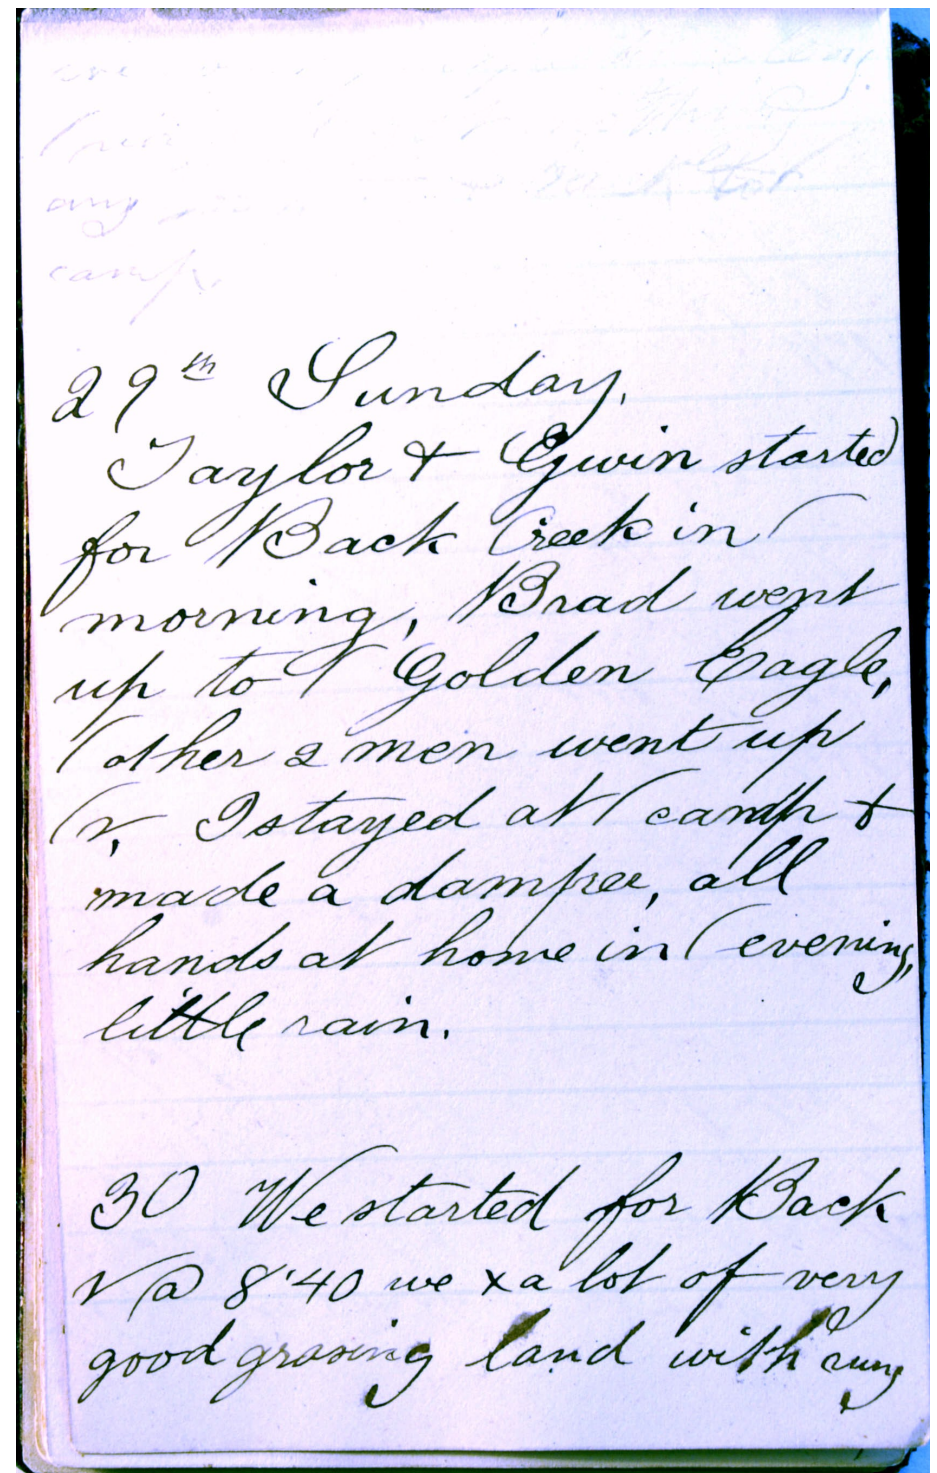 any
camp.
29th Sunday.
Taylor & Gwin started
for Back Creek in (
morning, Brad went
up to r Golden Eagle,
( other 2 men went up
( r, I stayed at ( camp &
made a damper, all
hands at home in ( evening,
little rain.
30 We started for Back
r @ 8.40 we x a lot of very
good grasing land with